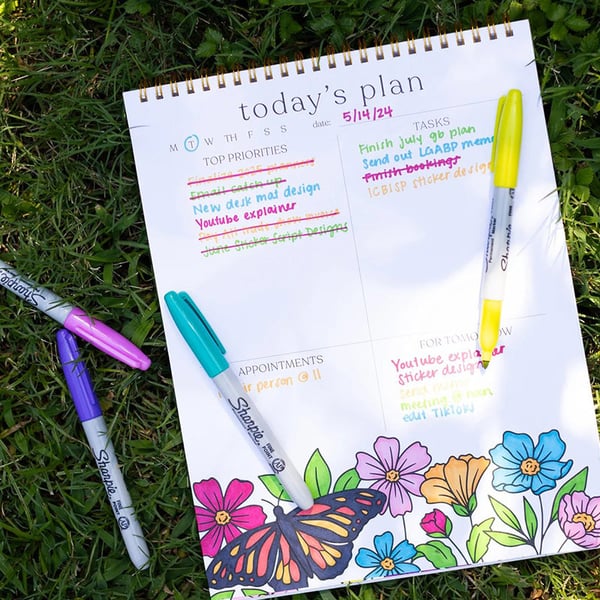 today's plan
M T W TH F S S
date: 5/14/24
TOP PRIORITIES
Email catch up
New desk mat design
Youtube explainer
June Sticker Script Designs
TASKS
Finish july gb plan
Send out LGABP
Finish bookings
ICBISP sticker design
APPOINTMENTS
person @ 11
FOR TOMORROW
Youtube explainer
Sticker design
meeting @ noon
edit TikToks
Sharpie
Sharpie
Sharpie
FINE POINT
Sharpie